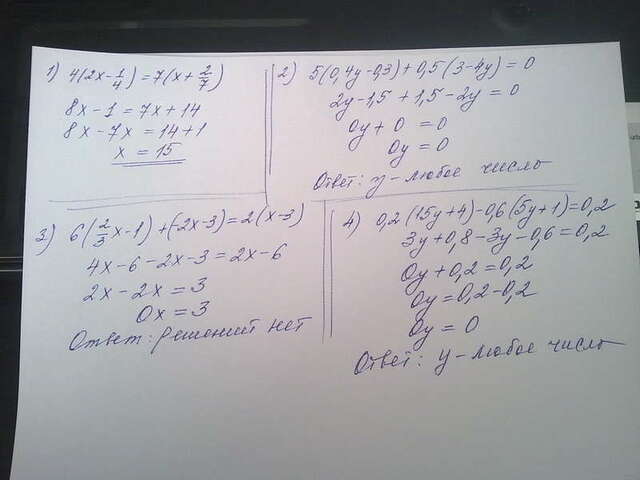 1) 4(2x-1/4)=7(x+2/7)
8x-1=7x+14
8x-7x=14+1
x=15
2) 5(0,4y-0,3)+0,5(3-4y)=0
2y-1,5+1,5-2y=0
0y+0=0
0y=0
Ответ: y-любое число
3) 6(2/3x-1)+(-2x-3)=2(x-3)
4x-6-2x-3=2x-6
2x-2x=3
0x=3
Ответ: решений нет
4) 0,2(15y+4)-0,6(5y+1)=0,2
3y+0,8-3y-0,6=0,2
0y+0,2=0,2
0y=0,2-0,2
0y=0
Ответ: y-любое число